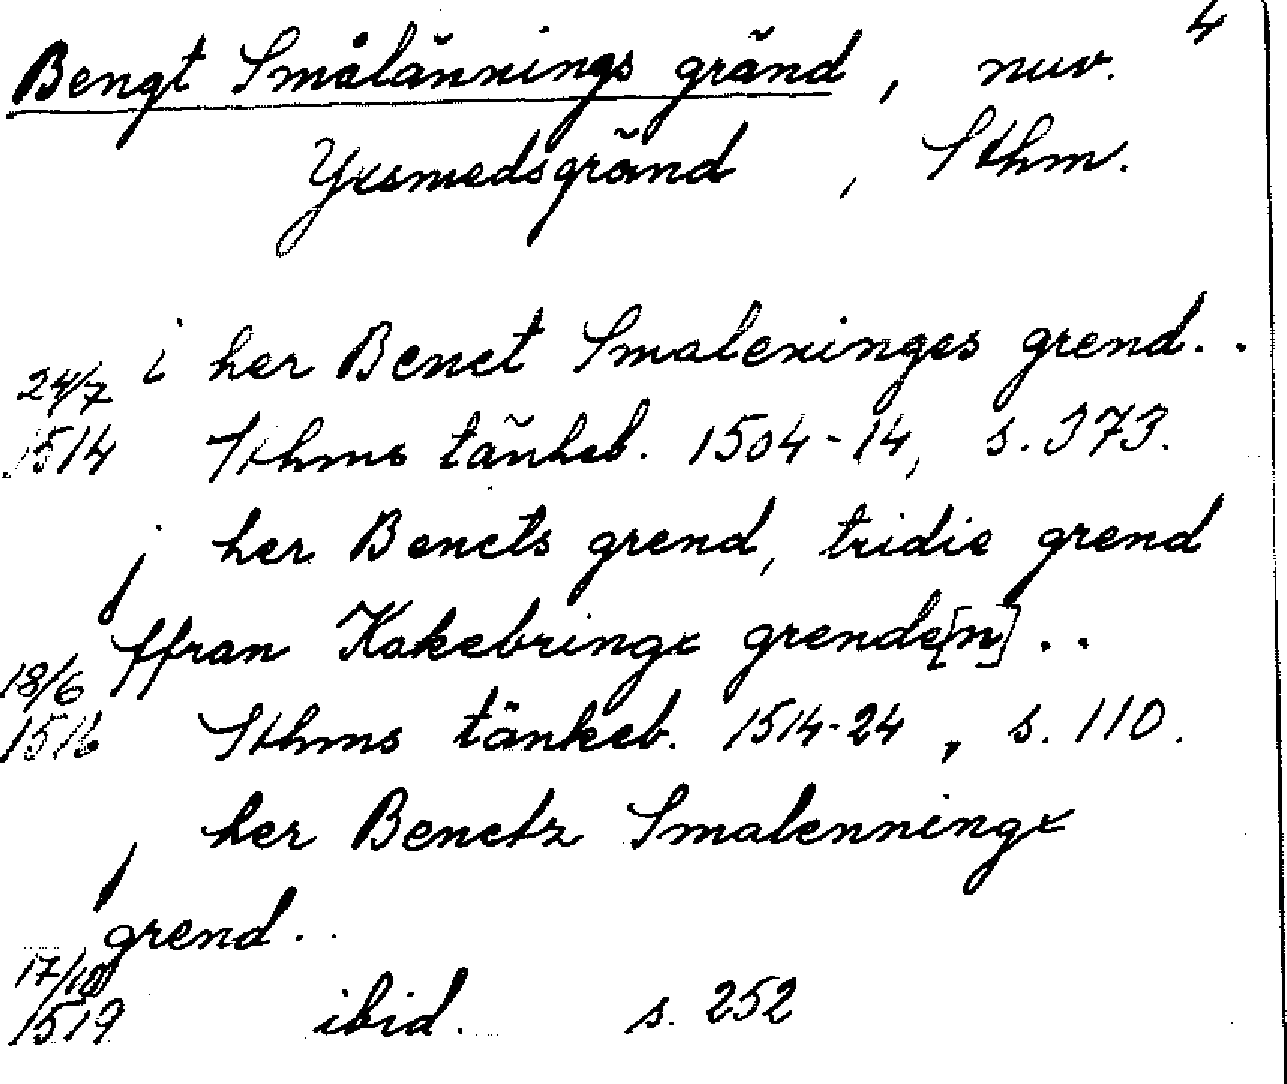 4
Bengt Smålännings gränd, nuv.
Yxsmedsgränd, Sthm.
i her Benct Smaleninges grend..
24/7
1514 Sthms tänkeb. 1504-14, s. 373.
j her Bencts grend, tridie grend
ffran Kakebringx grende[n]..
18/6
1516 Sthms tänkeb. 1514-24, s. 110.
j her Benctz Smalenningx
grend..
17/10
1519 ibid. s. 252